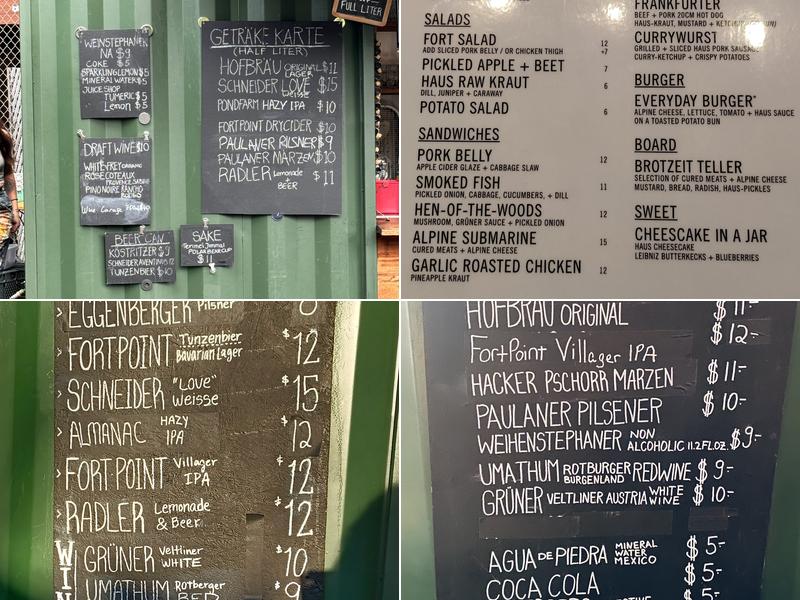 FULL LITER
WEINSTEPHANER
NA $9
COKE $5
SPARKLING LEMON $5
MINERAL WATER $5
JUICE SHOP
TUMERIC $5
Lemon $5
DRAFT WINE $10
WHITE-FREY
ROSE COTEAUX
PINO NOIRE RANCHO
Wine
BEER CAN
KOSTRITZER $9
SCHNEIDER AVENTINUS 12
TUNZENBIER $10
SAKE
POLAR BEAR CUP
$11
GETRÄKE KARTE
(HALF LITER)
HOFBRÄU ORIGINAL LAGER $11
SCHNEIDER LOVE WEISSE $15
PONDFARM HAZY IPA $10
FORTPOINT DRYCIDER $10
PAULANER PILSNER $9
PAULANER MARZEN $10
RADLER Lemonade & BEER $11
SALADS
FORT SALAD 12
ADD SLICED PORK BELLY / OR CHICKEN THIGH +7
PICKLED APPLE + BEET 7
HAUS RAW KRAUT 6
DILL, JUNIPER + CARAWAY
POTATO SALAD 6
SANDWICHES
PORK BELLY 12
APPLE CIDER GLAZE + CABBAGE SLAW
SMOKED FISH 11
PICKLED ONION, CABBAGE, CUCUMBERS, + DILL
HEN-OF-THE-WOODS 12
MUSHROOM, GRÜNER SAUCE + PICKLED ONION
ALPINE SUBMARINE 15
CURED MEATS + ALPINE CHEESE
GARLIC ROASTED CHICKEN 12
PINEAPPLE KRAUT
FRANKFURTER
BEEF + PORK 20CM HOT DOG
HAUS-KRAUT, MUSTARD +
CURRYWURST
GRILLED + SLICED HAUS PORK SAUSAGE
CURRY-KETCHUP + CRISPY POTATOES
BURGER
EVERYDAY BURGER*
ALPINE CHEESE, LETTUCE, TOMATO + HAUS SAUCE
ON A TOASTED POTATO BUN
BOARD
BROTZEIT TELLER
SELECTION OF CURED MEATS + ALPINE CHEESE
MUSTARD, BREAD, RADISH, HAUS-PICKLES
SWEET
CHEESCAKE IN A JAR
HAUS CHEESECAKE
LEIBNIZ BUTTERKECKS + BLUEBERRIES
EGGENBERGER Pilsner
> FORTPOINT Tunzenbier Bavarian Lager $12
> SCHNEIDER "LOVE" Weisse $15
> ALMANAC HAZY IPA $12
> FORT POINT Villager IPA $12
> RADLER Lemonade & Beer $12
WIN
GRÜNER Veltliner WHITE $10
UMATHUM Rotberger RED $9
HOFBRÄU ORIGINAL $11-
FortPoint Villager IPA $12-
HACKER PSCHORR MARZEN $11-
PAULANER PILSENER $10-
WEIHENSTEPHANER NON ALCOHOLIC 11.2FL.OZ. $9-
UMATHUM ROTBURGER BURGENLAND REDWINE $9-
GRÜNER VELTLINER AUSTRIA WHITE WINE $10-
AGUA DE PIEDRA MINERAL WATER MEXICO $5-
COCA COLA $5-
5-